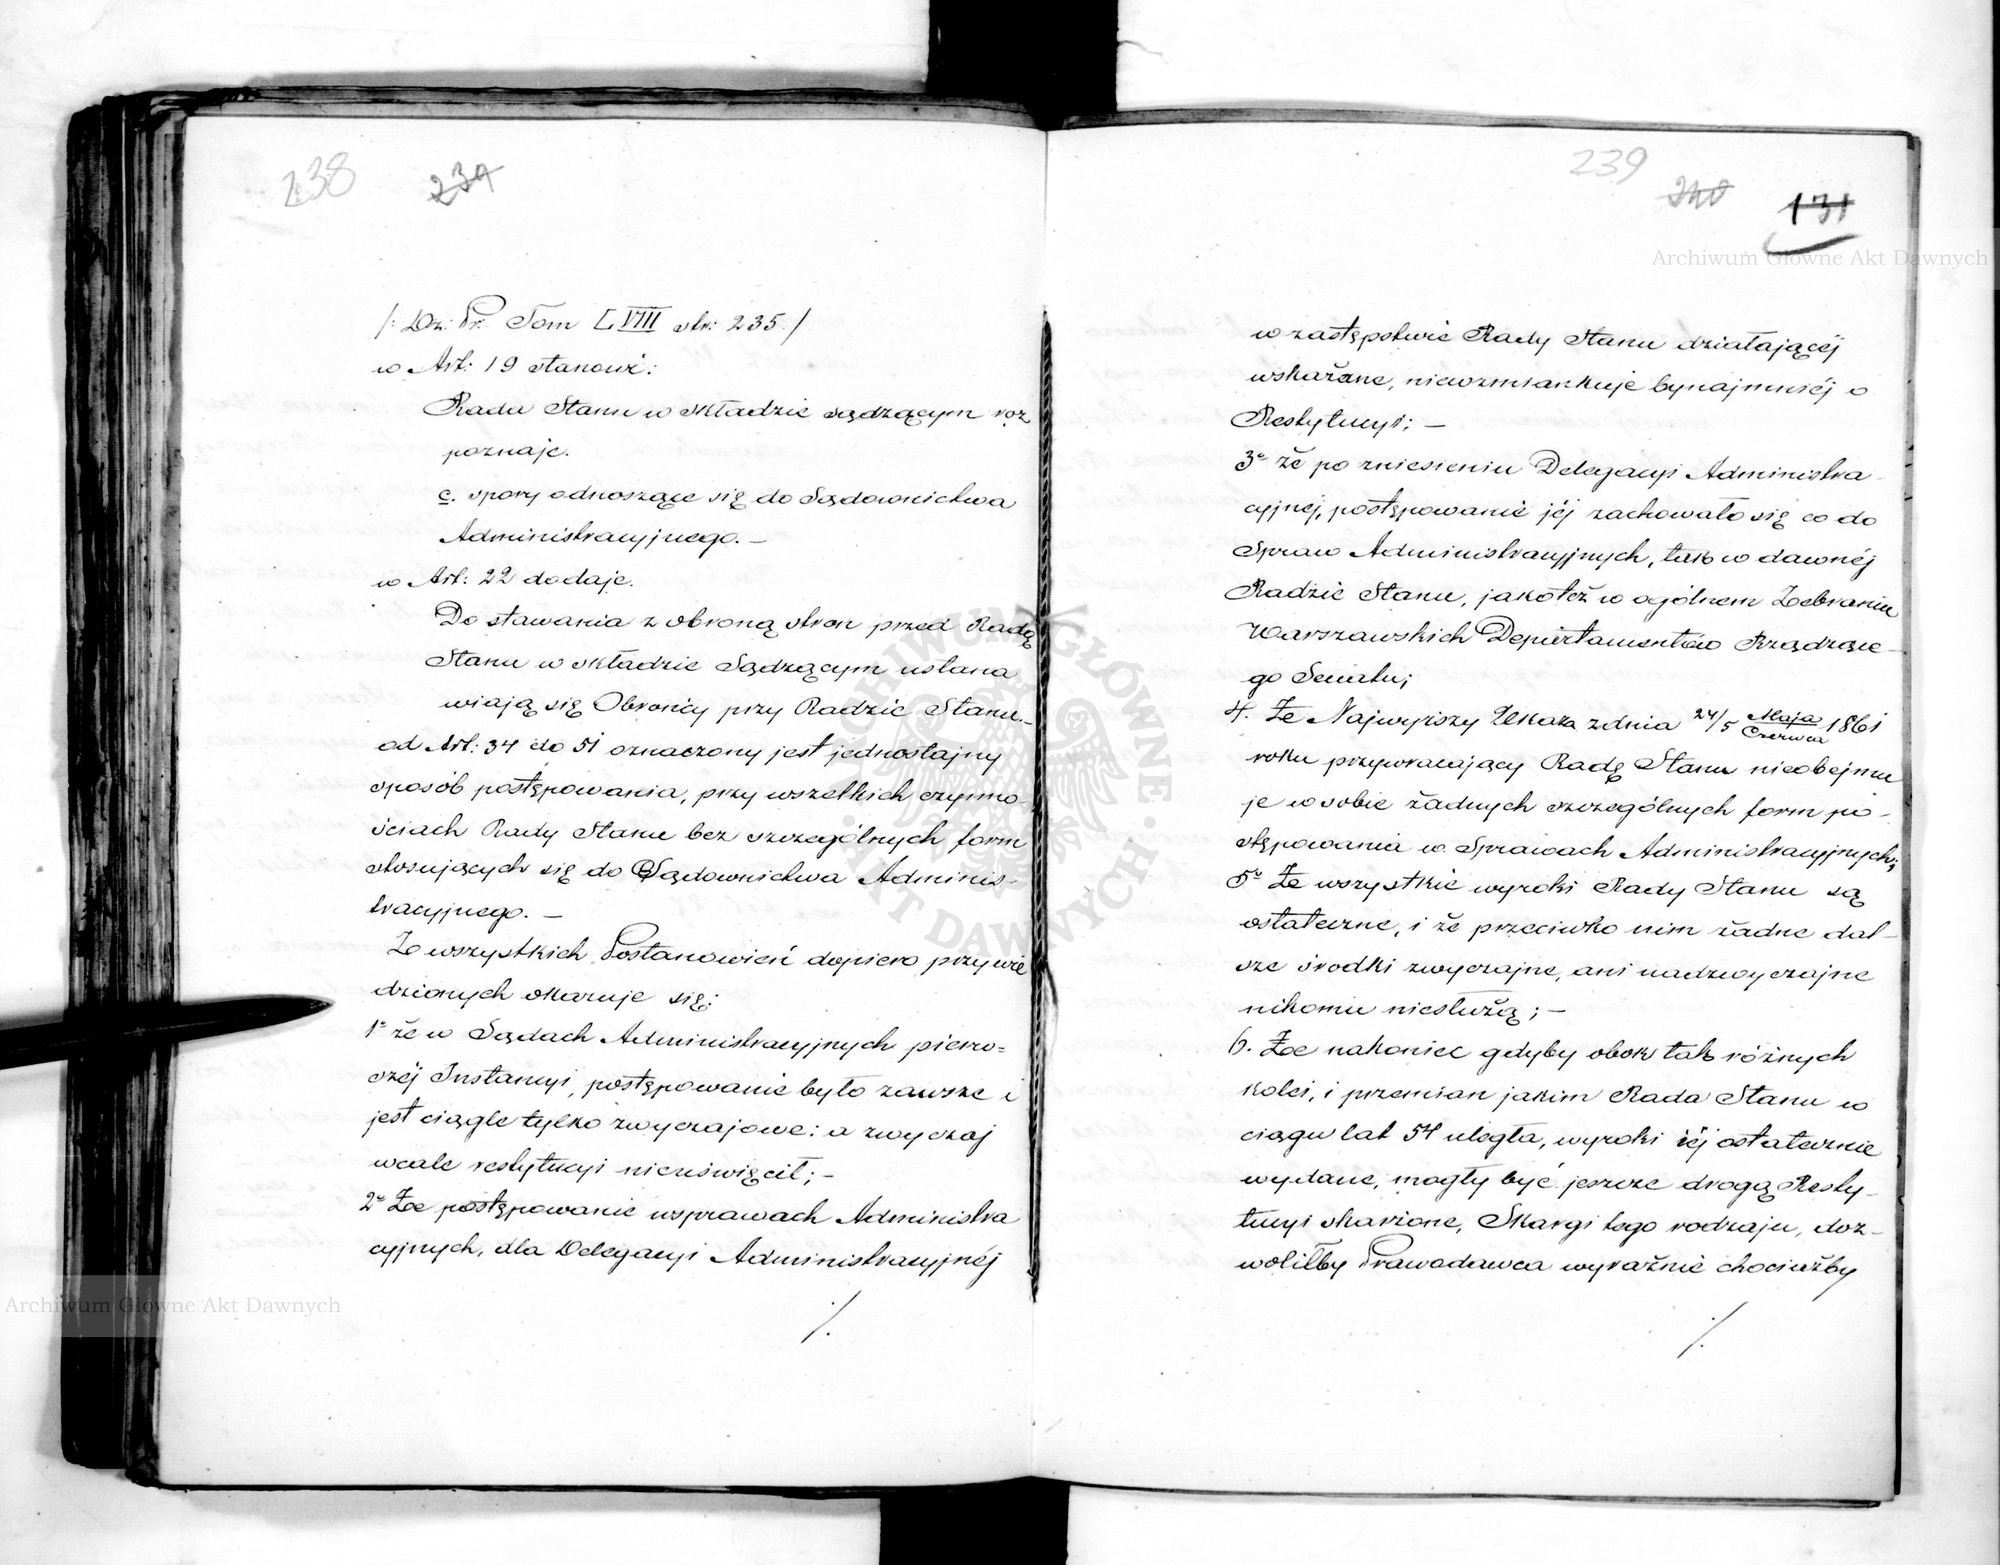 238 239
/: Dz: Pr. Tom LVIII str: 235. /
w Art: 19 stanowi:
Rada Stanu w składzie sądzącym roz
poznaje.
c. spory odnoszące się do Sądownictwa
Administracyjnego. —
w Art: 22 dodaje.
Do stawania z obroną stron przed Radą
Stanu w składzie Sądzącym ustana
wiają się Obrońcy przy Radzie Stanu. –
od Art: 34 do 51 oznaczony jest jednostajny
sposób postępowania, przy wszelkich czynno-
ściach Rady Stanu bez szczególnych form
stosujących się do Sądownictwa Adminis-
tracyjnego. —
Ze wszystkich Postanowień dopiero przywie
dzionych okazuje się:
1e że w Sądach Administracyjnych pierw=
széj Instancyi, postępowanie było zawsze i
jest ciągle tylko zwyczajowe: a zwyczaj
wcale restytucyi nieuświęcił; –
2e Że postępowanie wsprawach Administra
cyjnych, dla Delegacyi Administracyjnéj
/.
239 240 131
w zastępstwie Rady Stanu działającéj
wskazane, niewzmiankuje bynajmniéj o
Restytucyi; —
3e że po zniesieniu Delegacyi Administra-
cyjnéj, postępowanie jéj zachowało się co do
Spraw Administracyjnych, tak w dawnéj
Radzie Stanu, jakoteż w ogólnem Zebraniu
Warszawskich Departamentów Rządzące-
go Senatu;
4. Że Najwyższy Ukaz z dnia 24/5 Maja/Czerwca 1861
roku przywracający Radę Stanu nieobejmu
je w sobie żadnych szczególnych form po-
stępowania w Sprawach Administracyjnych;
5e Że wszystkie wyroki Rady Stanu są
ostateczne, i że przeciwko nim żadne dal-
sze środki zwyczajne, ani nadzwyczajne
nikomu niesłużą; –
6. Że nakoniec gdyby obok tak różnych
kolei, i przemian jakim Rada Stanu w
ciągu lat 54 uległa, wyroki jéj ostatecznie
wydane, mogły być jeszcze drogą Resty-
tucyi skarżone, Skargi tego rodzaju, doz-
woliłby Prawodawca wyraźnie chociażby
/.
Archiwum Główne Akt Dawnych
Archiwum Główne Akt Dawnych
ARCHIWUM GŁÓWNE · AKT DAWNYCH ·